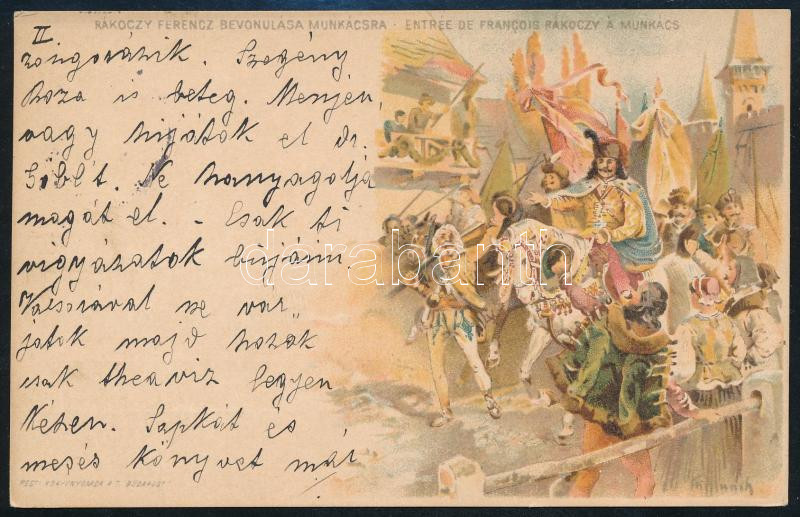 RÁKOCZY FERENCZ BEVONULÁSA MUNKÁCSRA · ENTRÉE DE FRANÇOIS RÁKOCZY À MUNKÁCS
II
zongorázik. Szegény
Roza is beteg. Menjen,
vagy hijátok el dr.
Ne hanyagolja
magát el. - Csak ti
vigyázatok
se var„
jatok majd hozok
csak theaviz legyen
készen. Sapkát és
mesés könyvet már
PESTI KÖNYVNYOMDA R.T. BUDAPEST
darabanth